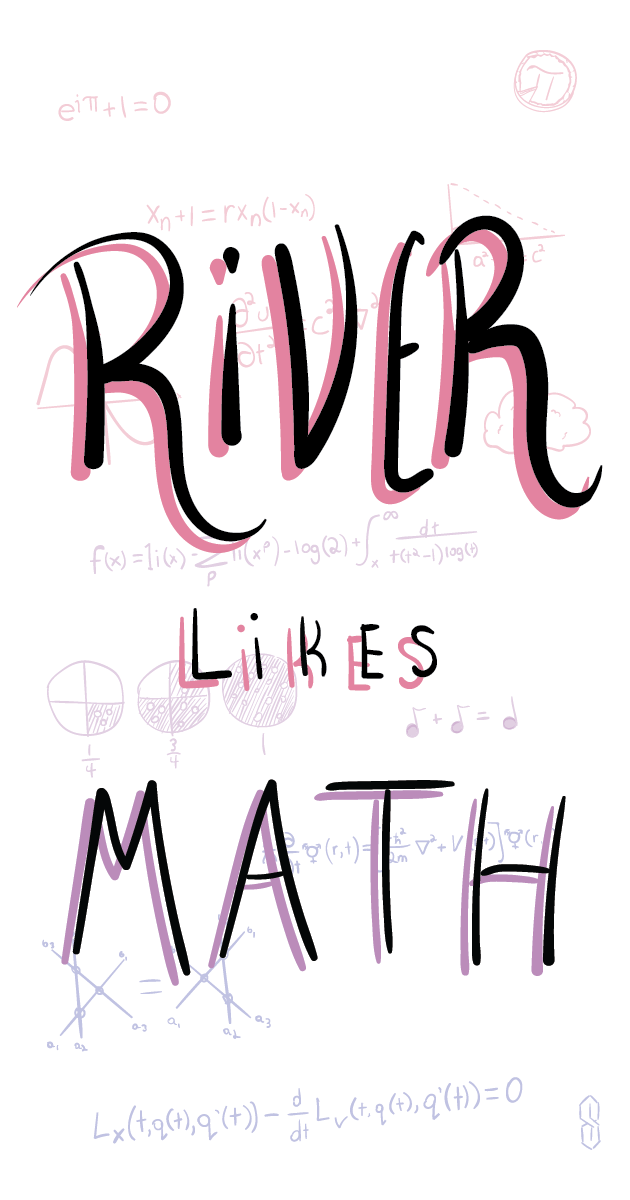 e^{iπ}+1=0
π
x_{n+1}=rx_n(1-x_n)
RiVER
a² = c²
f(x)=li(x)-∑_p li(x^ρ)-log(2)+∫_x^∞ dt/(t(t²-1)log(t))
LiKES
1/4 3/4 1
♪+♪=♩
MATH
b₃ b₁ = b₁
a₁ a₂ a₃ a₁ a₂ a₃
L_x(t,q(t),q'(t))-d/dt L_v(t,q(t),q'(t))=0